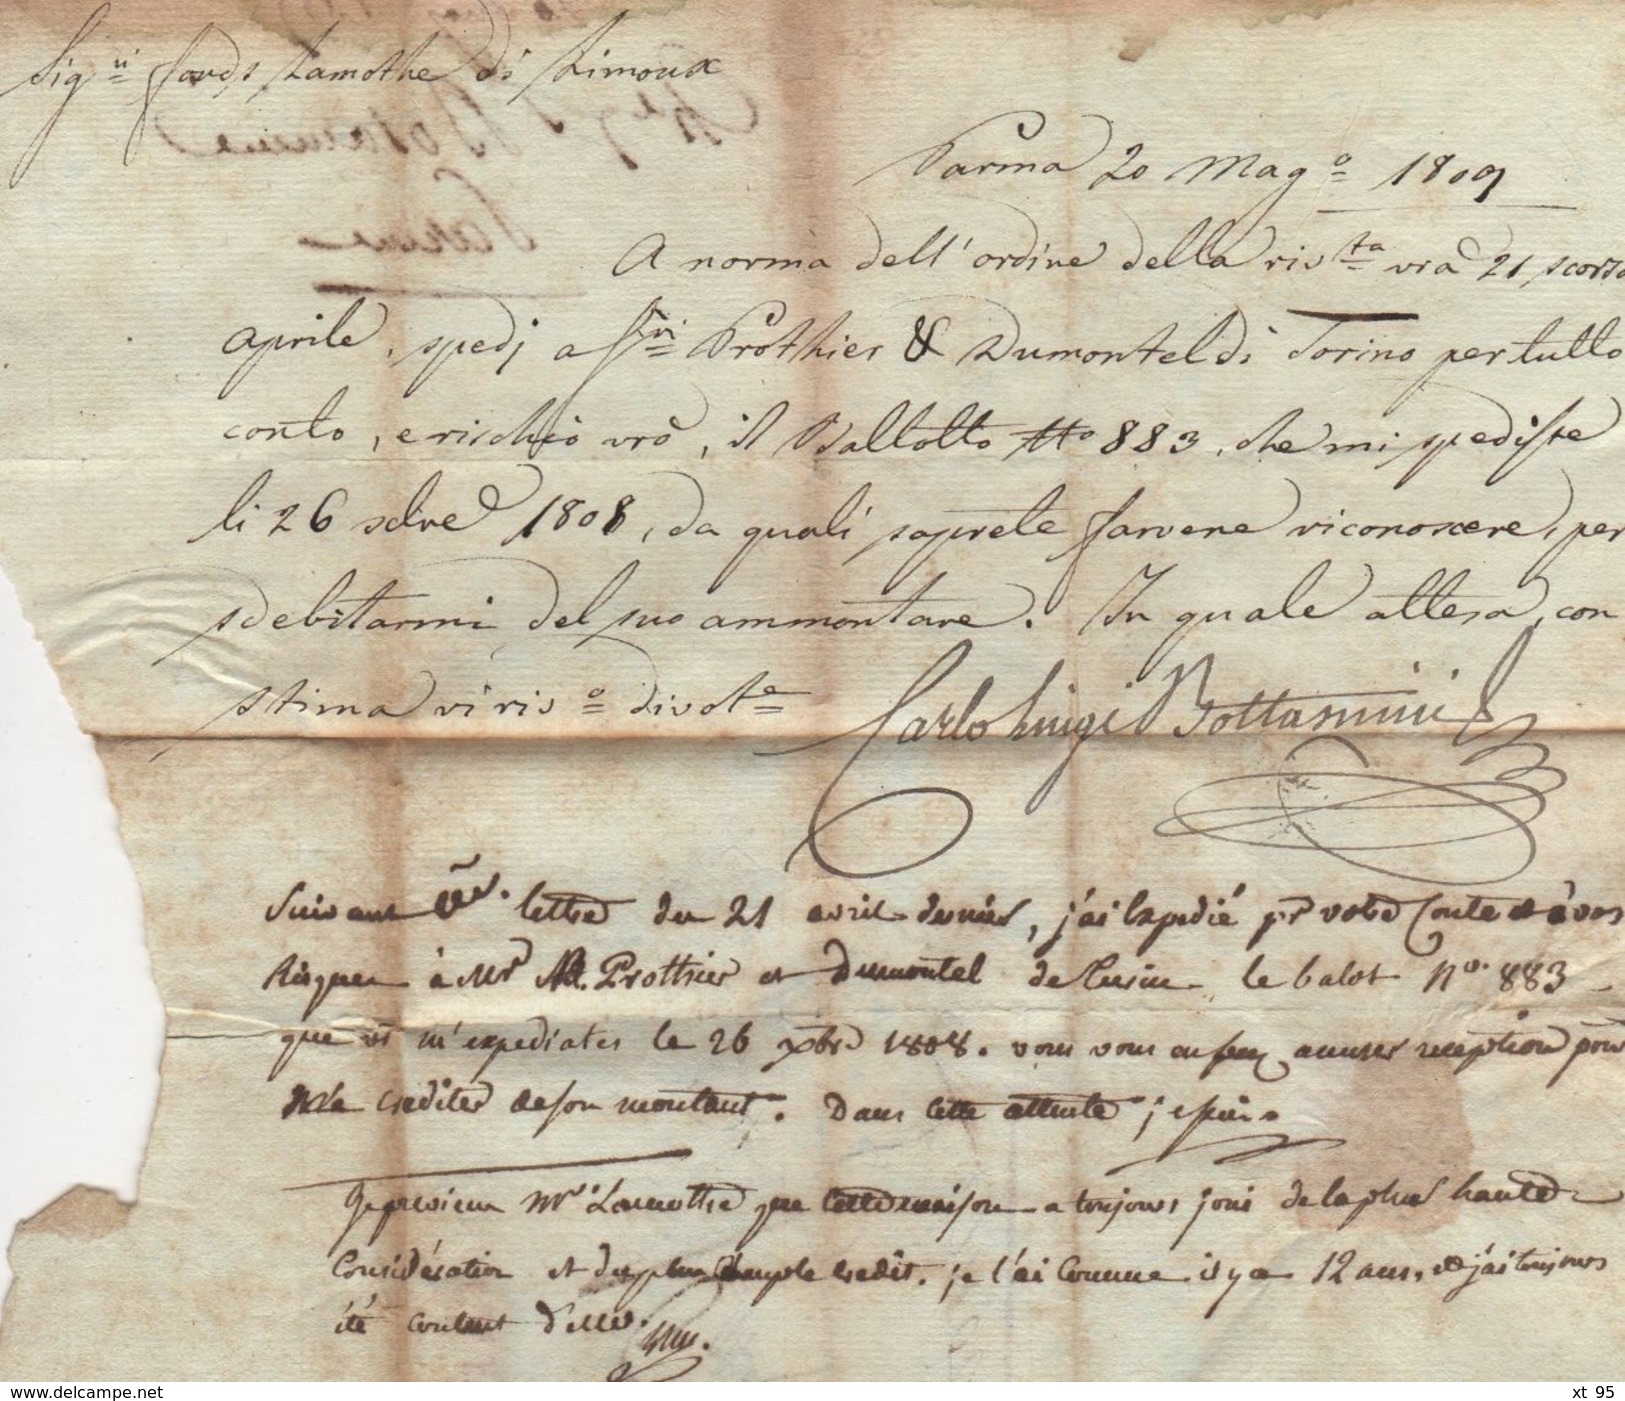 Sig.ri Lamothe di Limoux
Parma 20 Mag.o 1809
A norma dell'ordine della riv.ta vrã 21 scorso
aprile, spedj a S.ri Prothier & Dumontel di Torino per tutto
conto, e rischio vrõ, il Ballotto No 883, che mi spediste
li 26 1808, da quali saprete farvene riconoscere, per
sdebitarmi del suo ammontare. In quale attesa, con
stima vi riv.o divot.e Carlo Luigi Bottamini
Suivant lettre du 21 avril dernier, j'ai Expedié pr votre Conte et à vos
Risques à Mrs Prothier et Dumontel de Turin le balot No. 883
que vs m'expediates le 26 xbre 1808. vous vous en ferez accuser reception pour
me crediter de son montant. Dans cette attente, je suis
Je previens Mr. Lamothe que cette maison a toujours joui de la plus haute
Considération et du plus ample credit. je l'ai Connue il y a 12 ans, et j'ai toujours
été content d'elle.
www.delcampe.net
xt 95